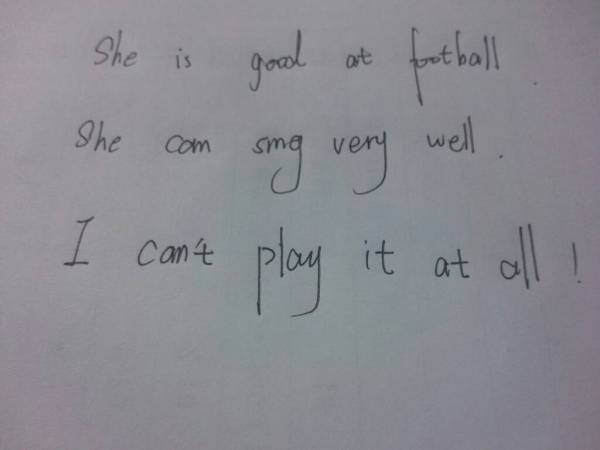 She is good at football.
She can sing very well.
I can't play it at all!